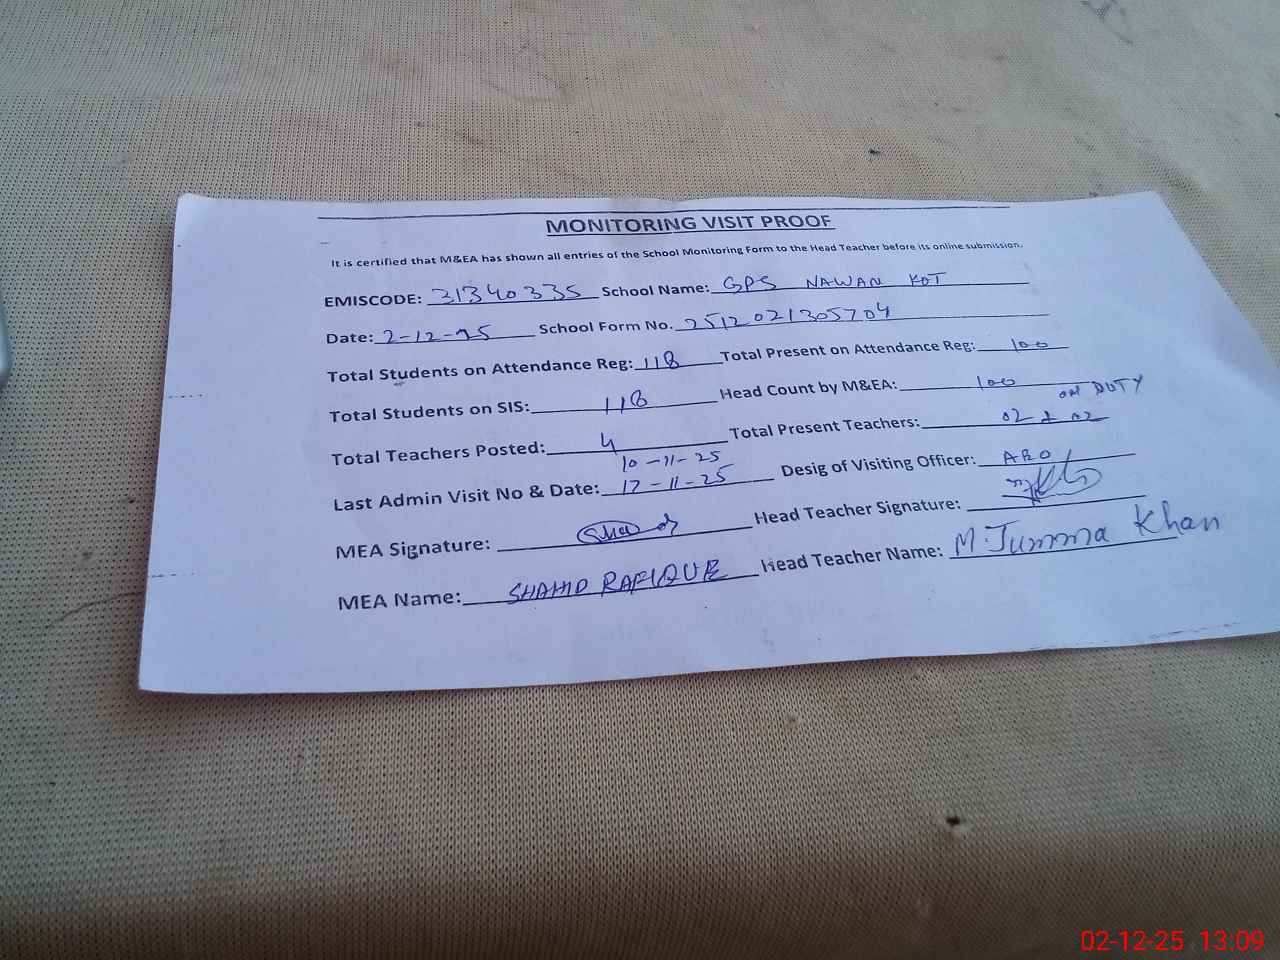 MONITORING VISIT PROOF
It is certified that M&EA has shown all entries of the School Monitoring Form to the Head Teacher before its online submission.
EMISCODE: 31340335 School Name: GPS NAWAN KOT
Date: 2-12-25 School Form No. 2512021305704
Total Students on Attendance Reg: 118 Total Present on Attendance Reg: 100
Total Students on SIS: 118 Head Count by M&EA: 100
ON DUTY
Total Teachers Posted: 4 Total Present Teachers: 02 + 02
10-11-25
Last Admin Visit No & Date: 17-11-25 Desig of Visiting Officer: ARO
MEA Signature: Head Teacher Signature:
MEA Name: SHAHID RAFIQUE Head Teacher Name: M. Jumma Khan
02-12-25 13:09